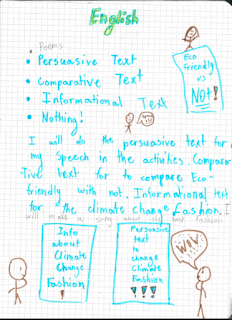 English
Poems
• Persuasive Text
• Comparative Text
• Informational Text
• Nothing!
Eco
Friendly
vs
NOt!
I will do the persuasive text for
my speech in the activities. Compara-
tive text for to compare Eco-
friendly with not. Informational text
for the climate change Fashion. I
will make a song about my last fashion
Info
about
Climate
Change
Fashion
!
Persuasive
text
to
change
Climate
Fashion
!!!
WOW!